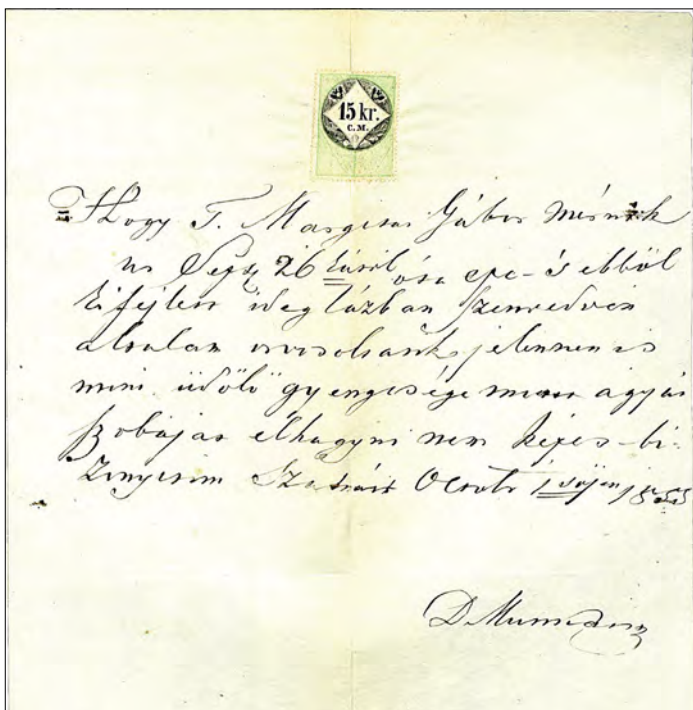 15 kr.
C.M.
Hogy T. Gábor mérnök
ur Sept 26 óta epe- s ebből
kifejlett ideglázban szenvedvén
általam orvosoltatik, jelennen is
mint üdölő gyengesége miatt ágyát
szobáját elhagyni nem képes - bi-
zonyitom Octob 1 1855